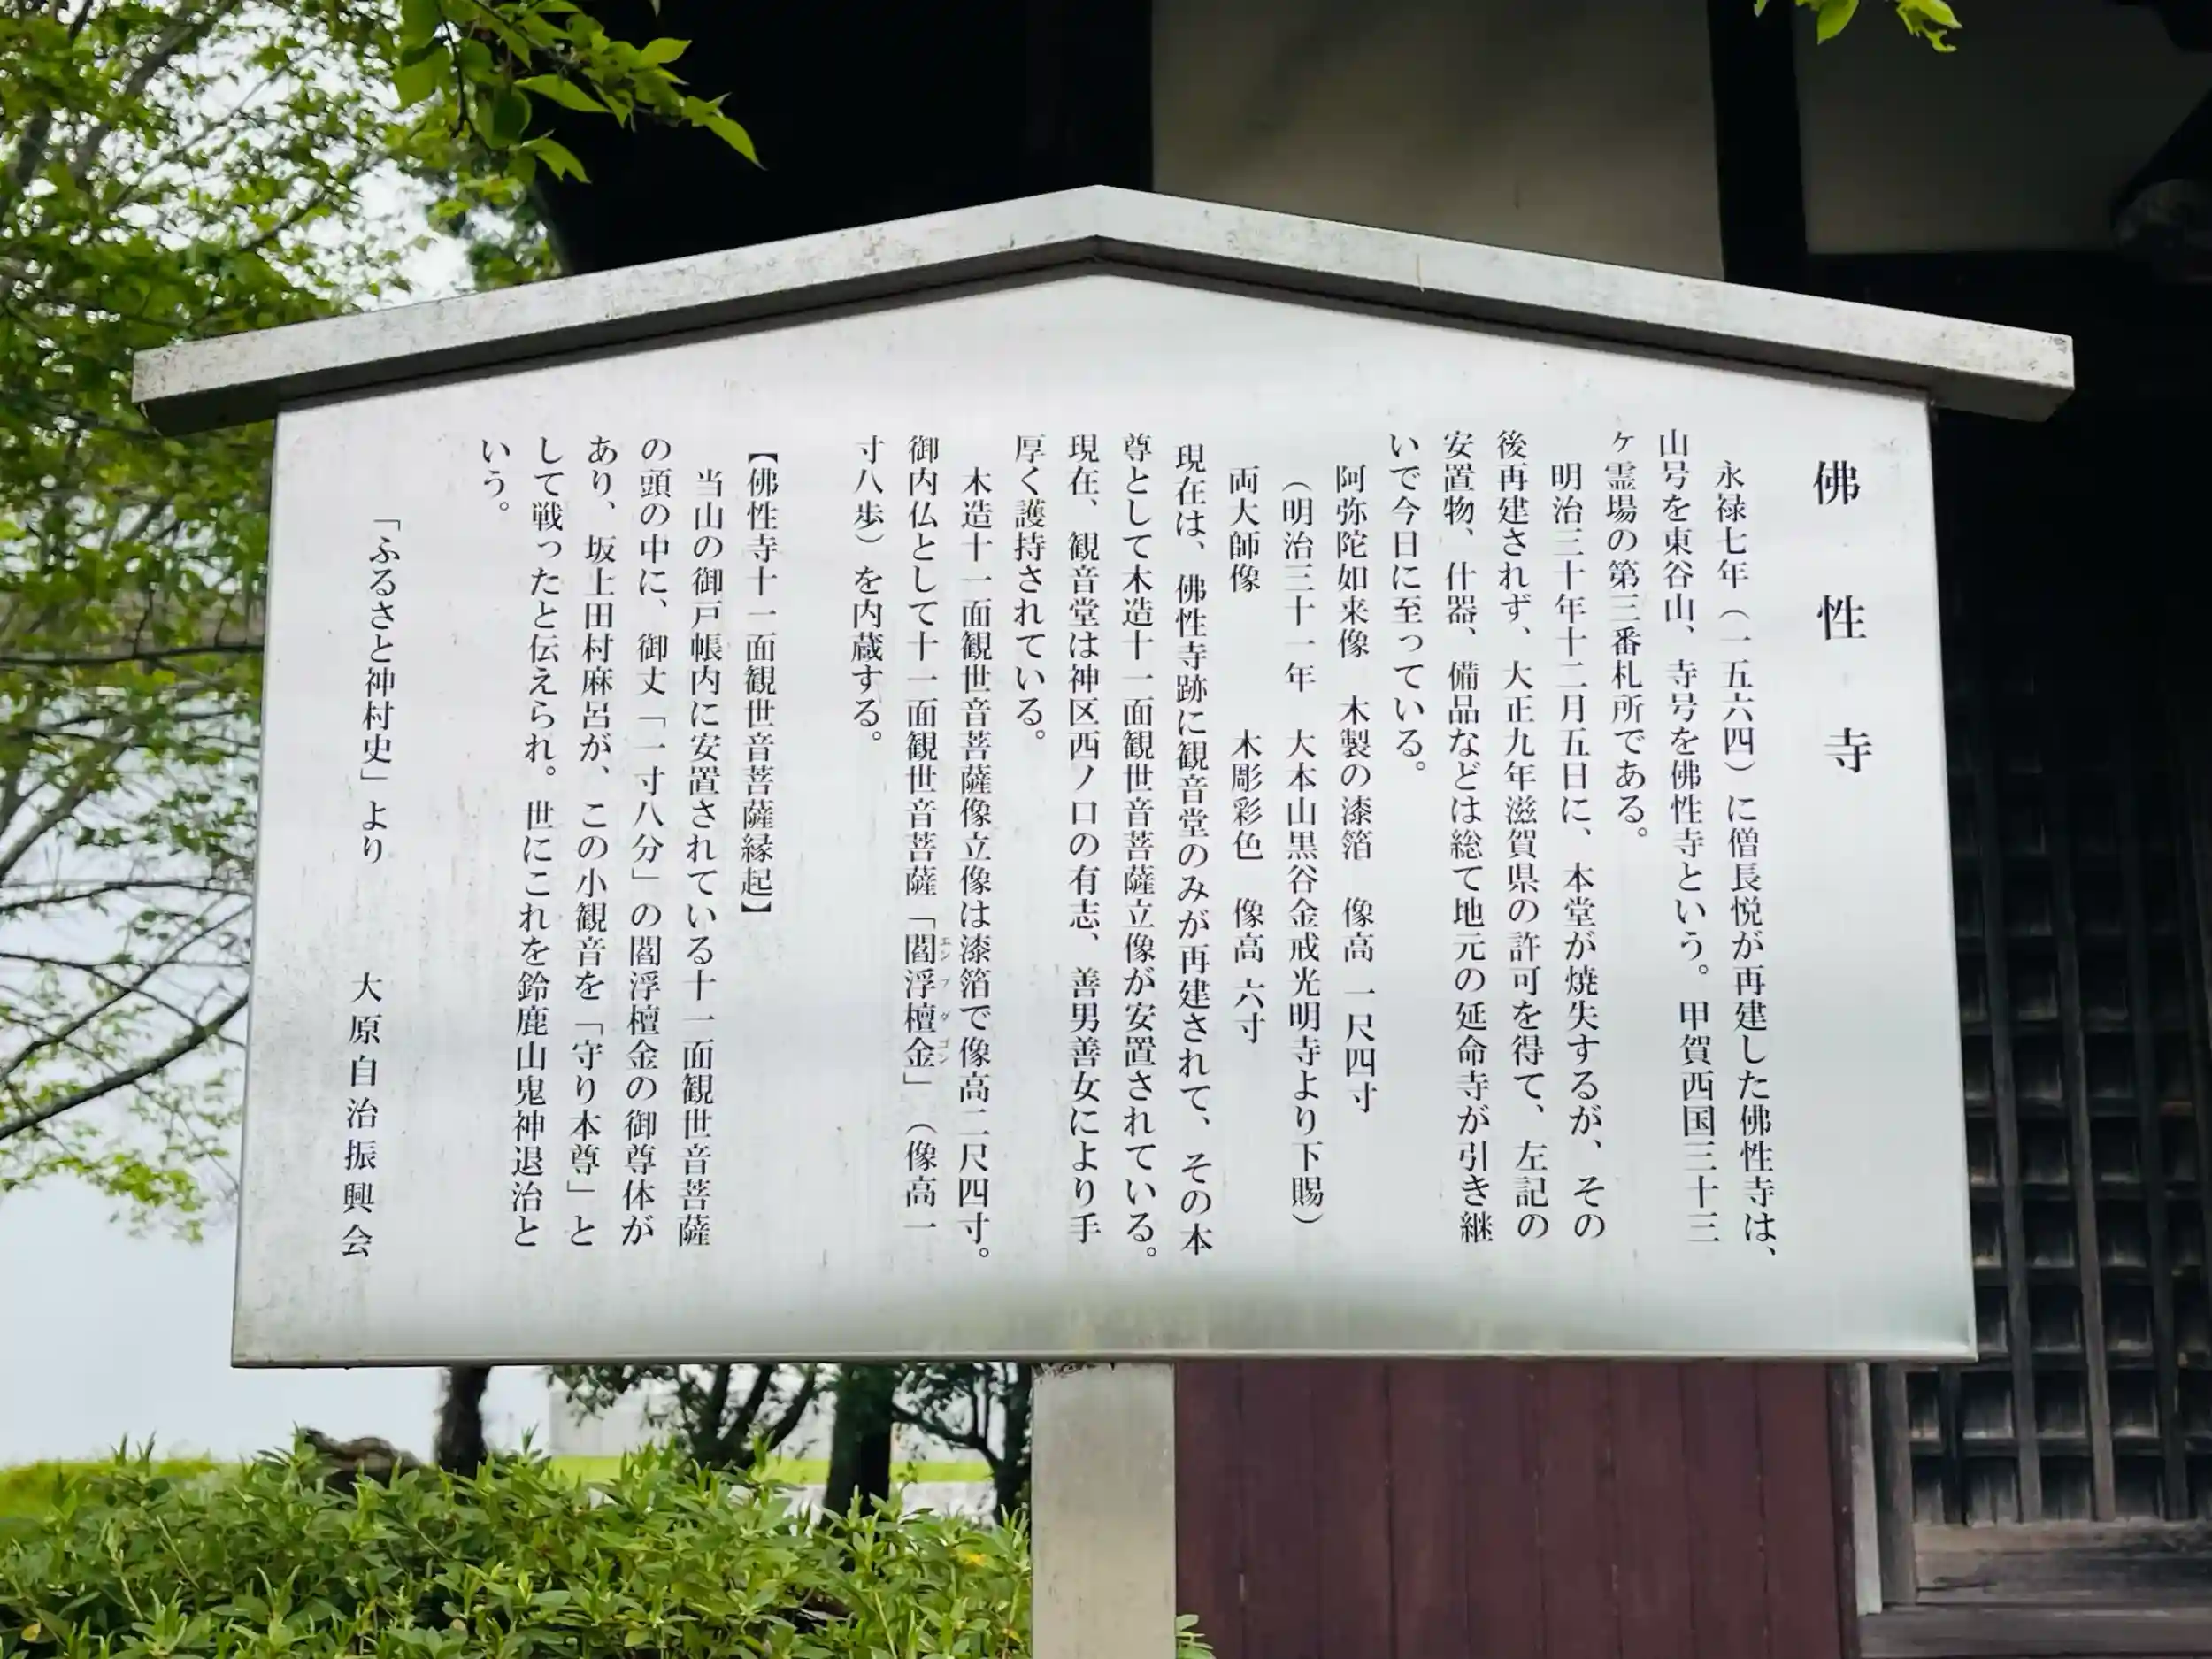 佛性寺
永禄七年（一五六四）に僧長悦が再建した佛性寺は、
山号を東谷山、寺号を佛性寺という。甲賀西国三十三
ヶ霊場の第三番札所である。
明治三十年十二月五日に、本堂が焼失するが、その
後再建されず、大正九年滋賀県の許可を得て、左記の
安置物、什器、備品などは総て地元の延命寺が引き継
いで今日に至っている。
阿弥陀如来像　木製の漆箔　像高 一尺四寸
（明治三十一年　大本山黒谷金戒光明寺より下賜）
両大師像　　　　木彫彩色　像高 六寸
現在は、佛性寺跡に観音堂のみが再建されて、その本
尊として木造十一面観世音菩薩立像が安置されている。
現在、観音堂は神区西ノ口の有志、善男善女により手
厚く護持されている。
木造十一面観世音菩薩像立像は漆箔で像高二尺四寸。
御内仏として十一面観世音菩薩「閻浮檀金」（像高一
エンブダゴン
寸八歩）を内蔵する。
【佛性寺十一面観世音菩薩縁起】
当山の御戸帳内に安置されている十一面観世音菩薩
の頭の中に、御丈「一寸八分」の閻浮檀金の御尊体が
あり、坂上田村麻呂が、この小観音を「守り本尊」と
して戦ったと伝えられ。世にこれを鈴鹿山鬼神退治と
いう。
「ふるさと神村史」より　　大原自治振興会